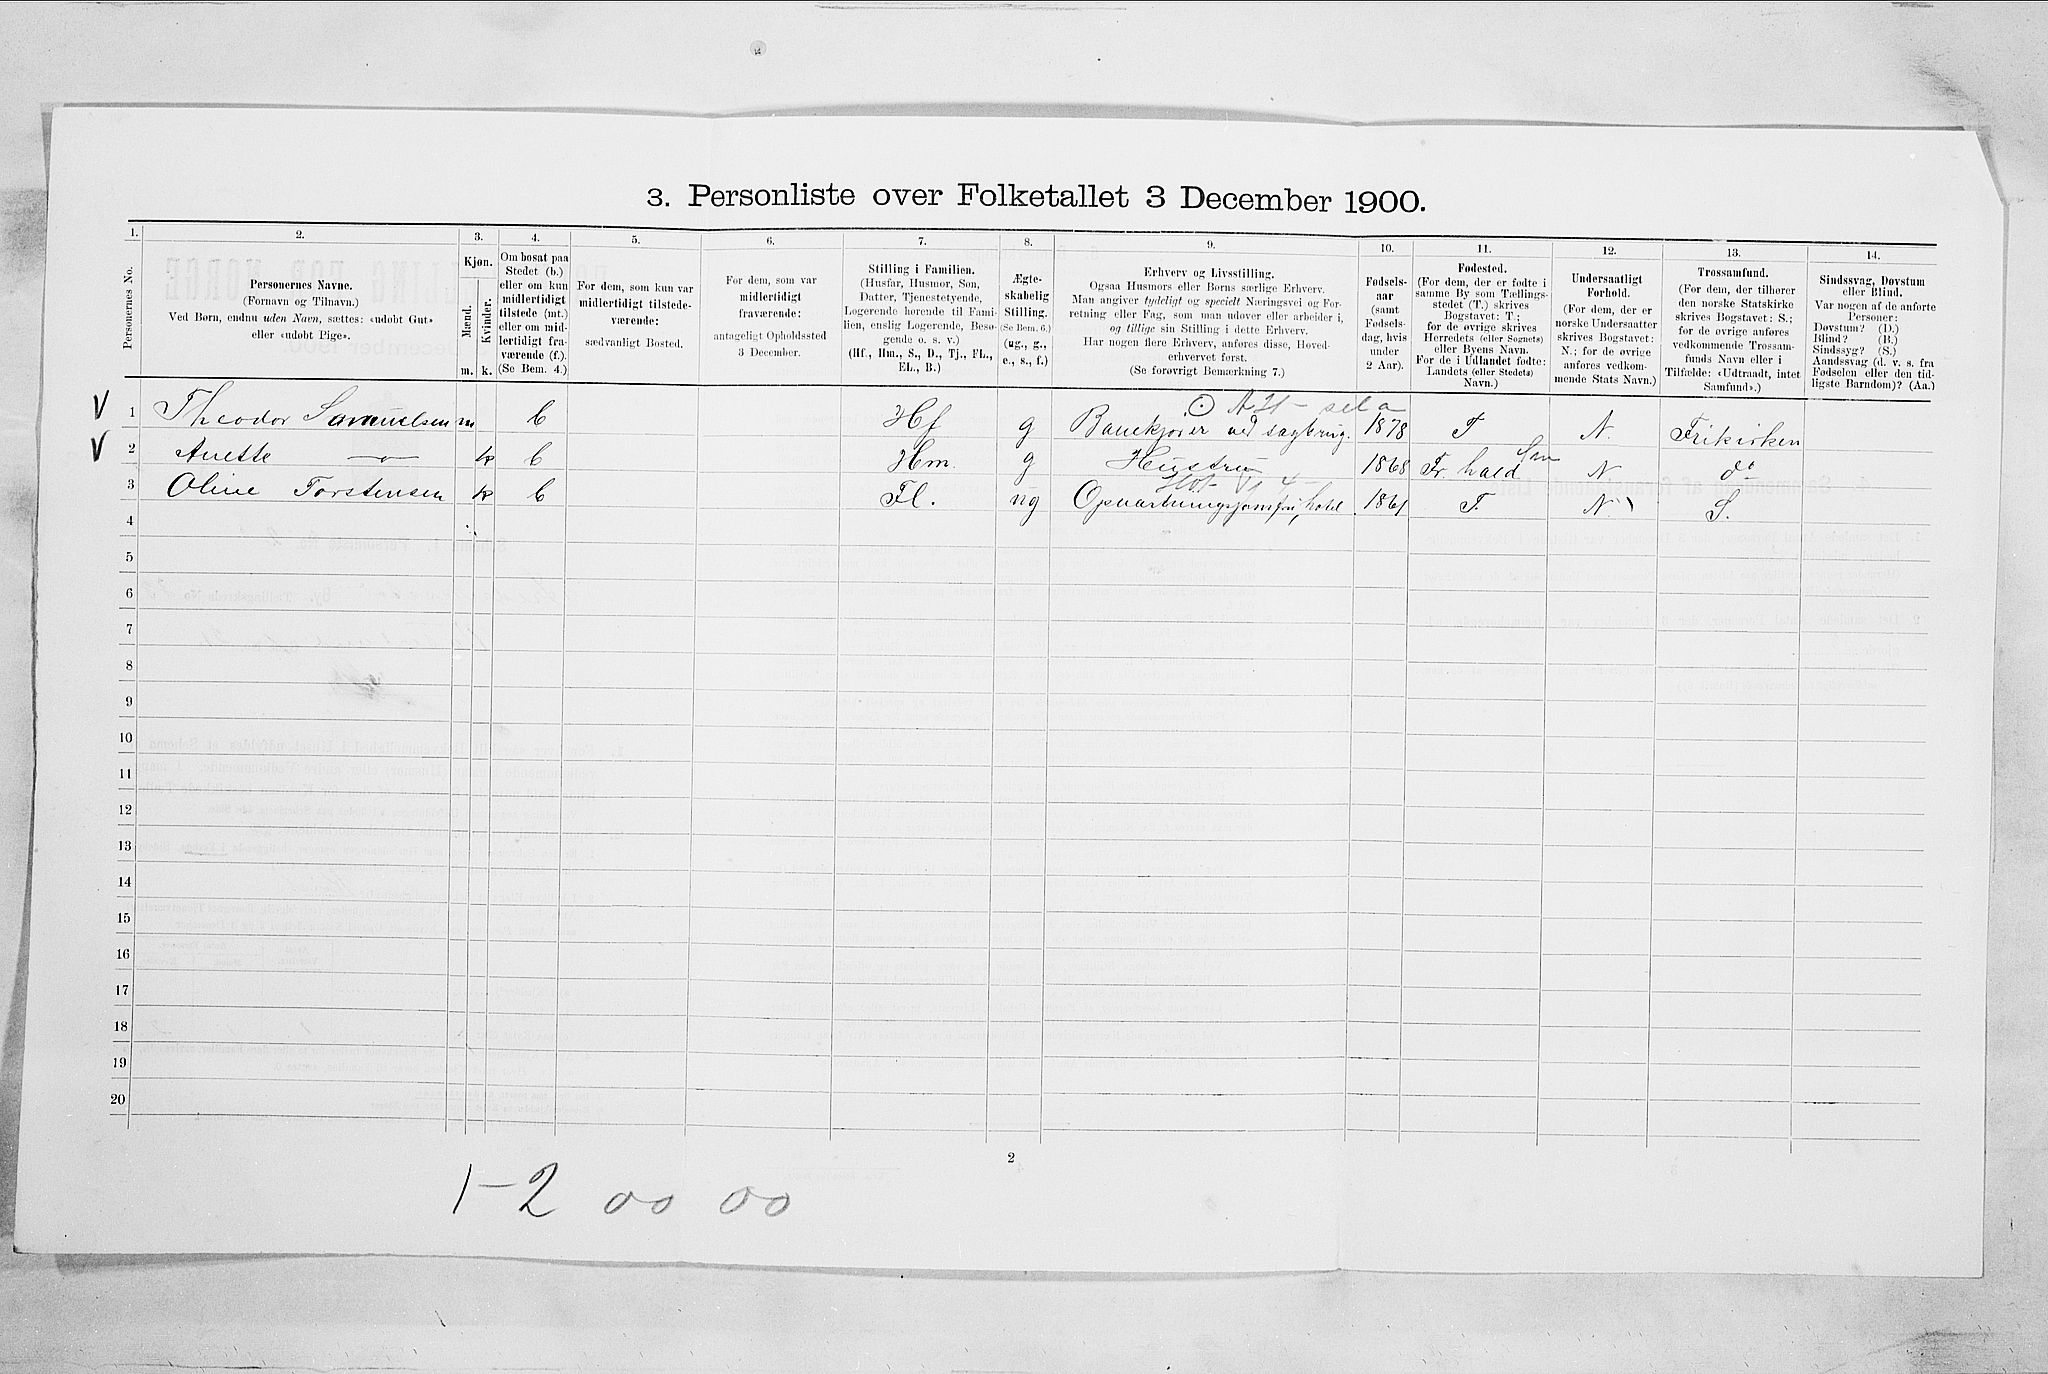 3. Personliste over Folketallet 3 December 1900.
1. 2. 3. 4. 5. 6. 7. 8. 9. 10. 11. 12. 13. 14.
Personernes No.
Personernes Navne.
(Fornavn og Tilnavn.)
Ved Børn, endnu uden Navn, sættes: «udøbt Gut»
eller «udøbt Pige».
Kjøn.
Mænd.
Kvinder.
m. k.
Om bosat paa
Stedet (b.)
eller om kun
midlertidigt
tilstede (mt.)
eller om mid-
lertidigt fra-
værende (f.).
(Se Bem. 4.)
For dem, som kun var
midlertidigt tilstede-
værende:
sædvanligt Bosted.
For dem, som var
midlertidigt
fraværende:
antageligt Opholdssted
3 December.
Stilling i Familien.
(Husfar, Husmor, Søn,
Datter, Tjenestetyende,
Logerende hørende til Fami-
lien, enslig Logerende, Besø-
gende o. s. v.)
(Hf., Hm., S., D., Tj., FL.,
EL., B.)
Ægte-
skabelig
Stilling.
(Se Bem. 6.)
(ug., g.,
e., s., f.)
Erhverv og Livsstilling.
Ogsaa Husmors eller Børns særlige Erhverv.
Man angiver tydeligt og specielt Næringsvei og For-
retning eller Fag, som man udøver eller arbeider i,
og tillige sin Stilling i dette Erhverv.
Har nogen flere Erhverv, anføres disse, Hoved-
erhvervet først.
(Se forøvrigt Bemærkning 7.)
Fødsels-
aar
(samt
Fødsels-
dag, hvis
under
2 Aar).
Fødested.
(For dem, der er fødte i
samme By som Tællings-
stedet (T.) skrives
Bogstavet: T.;
for de øvrige skrives
Herredets (eller Sognets)
eller Byens Navn.
For de i Udlandet fødte:
Landets (eller Stedets)
Navn.)
Undersaatligt
Forhold.
(For dem, der er
norske Undersaatter
skrives Bogstavet:
N.; for de øvrige
anføres vedkom-
mende Stats Navn.)
Trossamfund.
(For dem, der tilhører
den norske Statskirke
skrives Bogstavet: S.;
for de øvrige anføres
vedkommende Trossam-
funds Navn eller i
Tilfælde: «Udtraadt, intet
Samfund».)
Sindssvag, Døvstum
eller Blind.
Var nogen af de anførte
Personer:
Døvstum? (D.)
Blind? (B.)
Sindssyg? (S.)
Aandssvag (d. v. s. fra
Fødselen eller den tid-
ligste Barndom)? (Aa.)
V 1 Theodor Samuelsen m b Hf g Banekjører ved sagbrug. 1878 T N. Frikirken
V 2 Anette —〃— k b Hm. g Hustru 1868 Fr. hald N do
3 Oline Torstensen k b Fl. ug Opvartningsjomfru, hotel 1861 T. N. S.
4
5
6
7
8
9
10
11
12
13
14
15
16
17
18
19
20
2
1-2 00 00